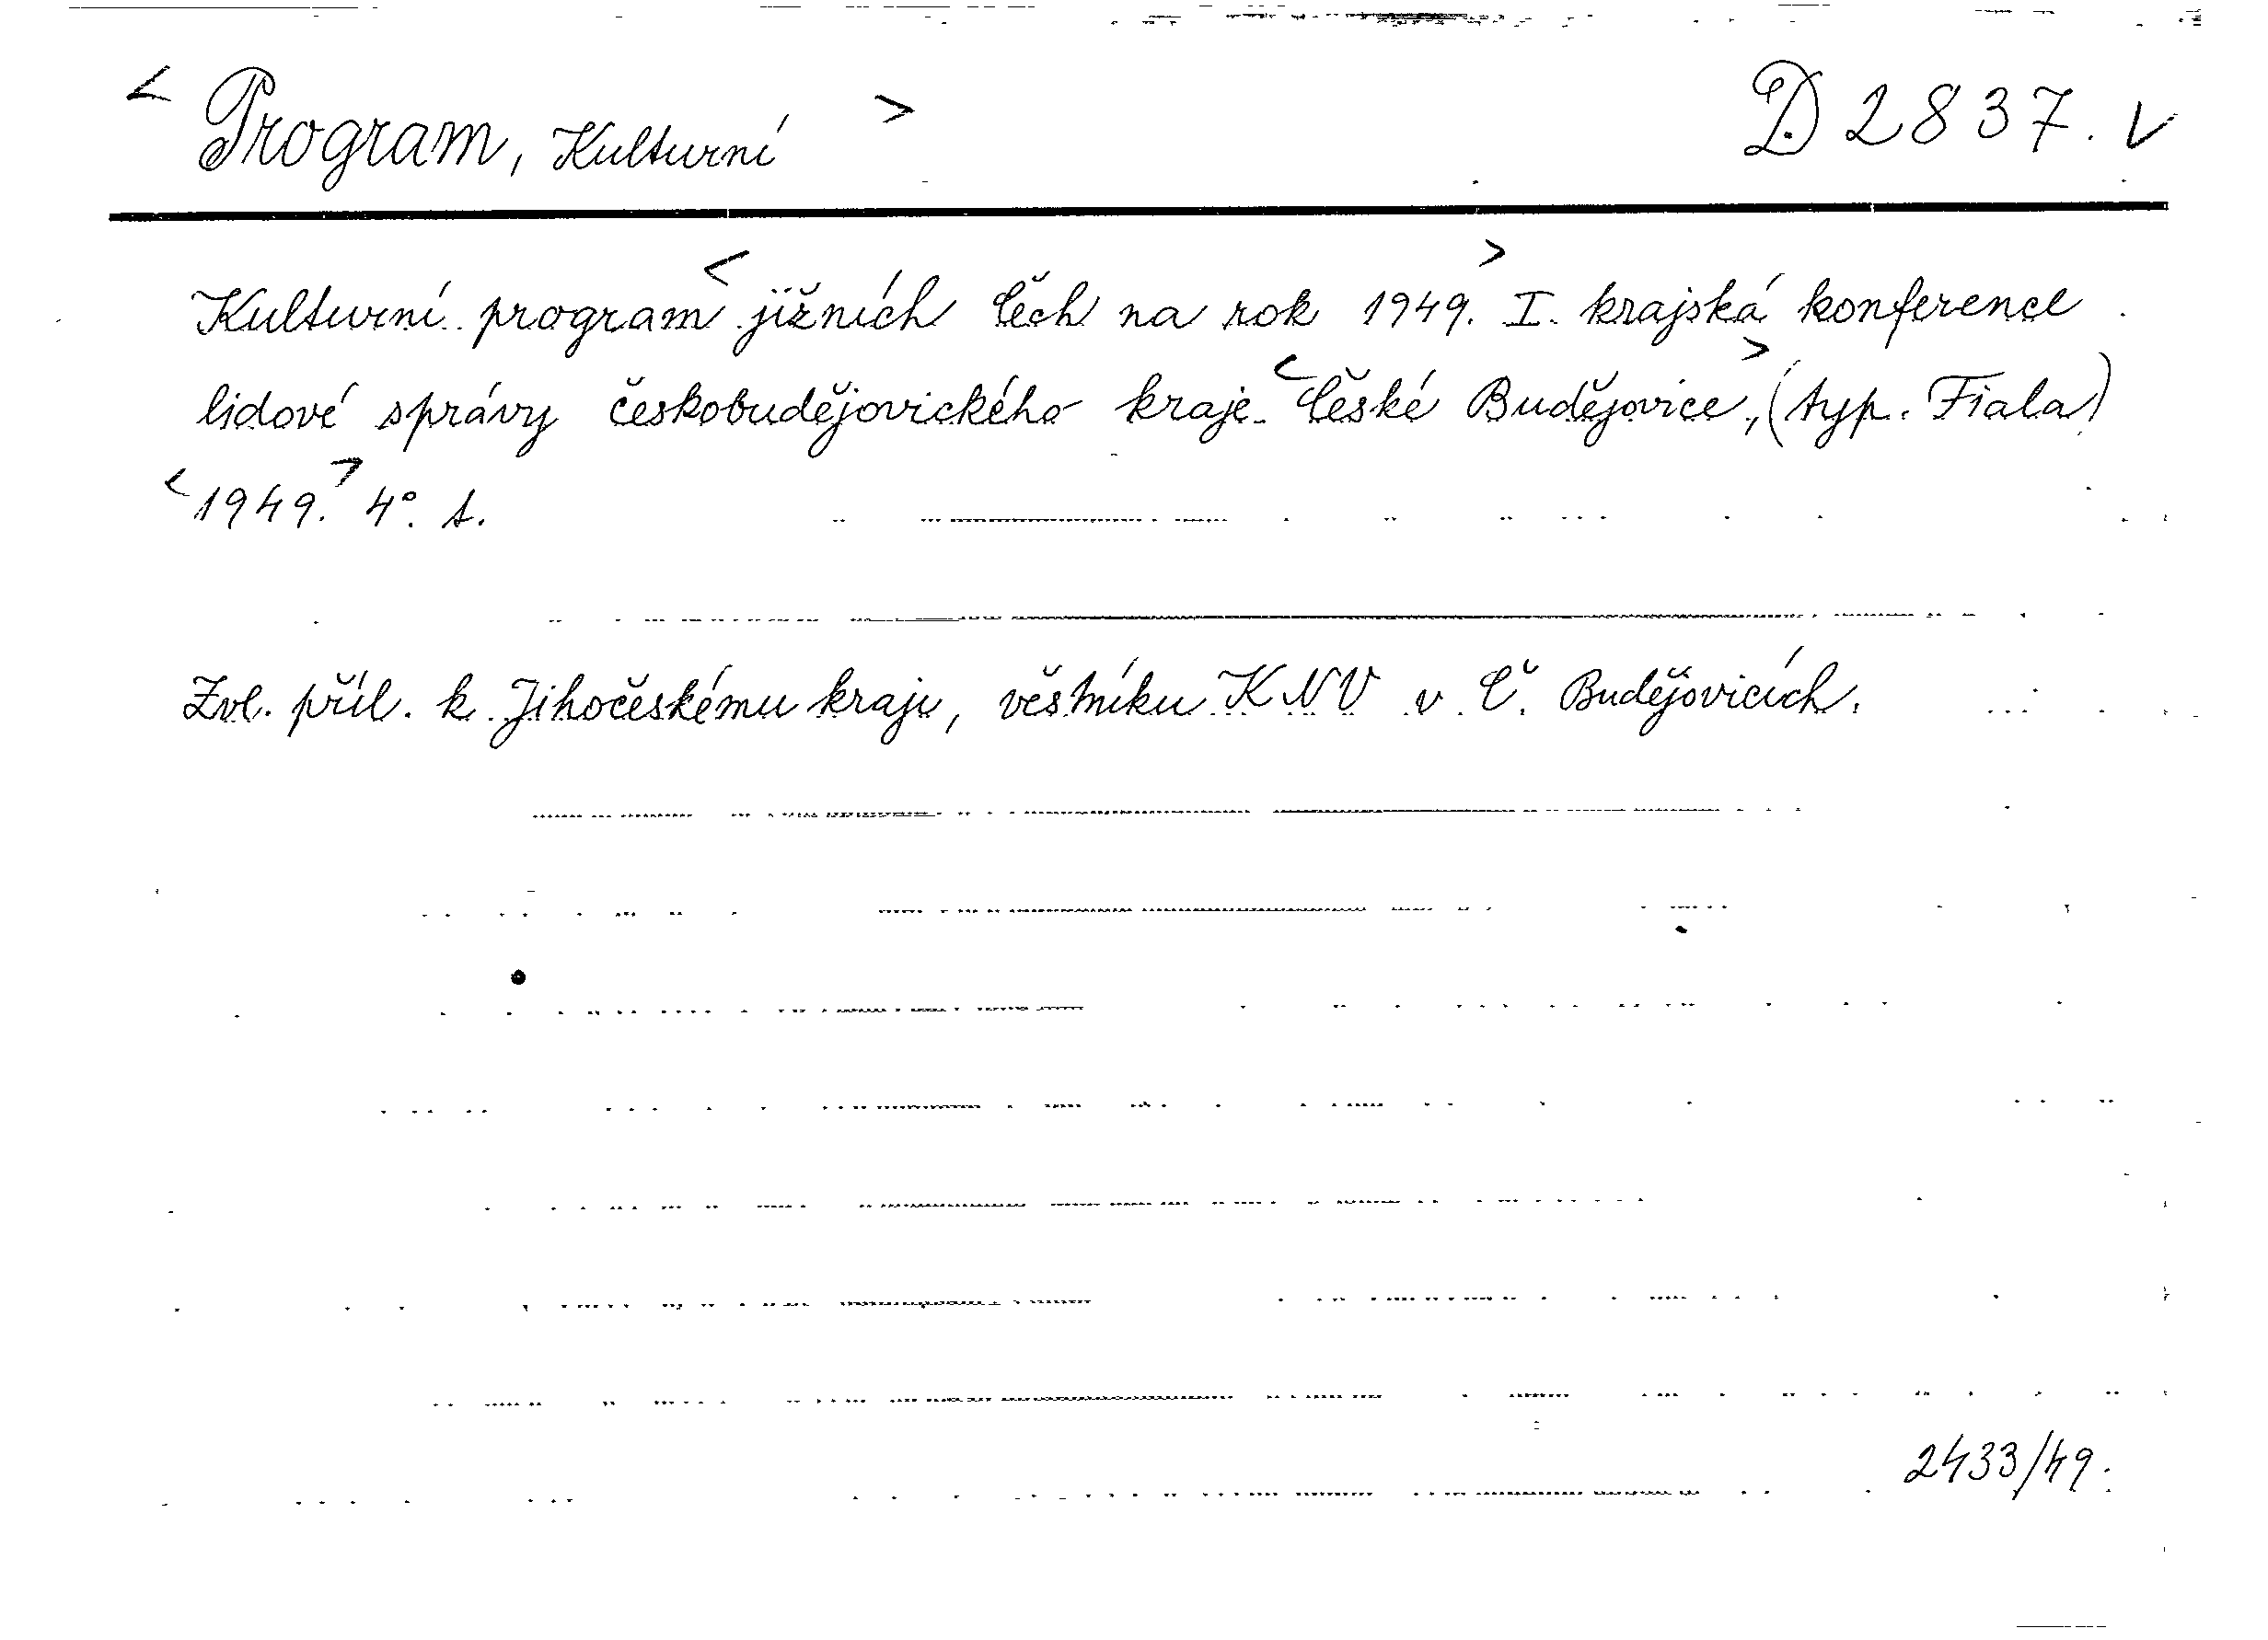 < Program, Kulturní > D 2837. V
Kulturní program < jižních Čech na rok 1949. > I. krajská konference
lidové správy českobudějovického kraje. < České Budějovice, > (typ. Fiala)
< 1949. > 4°. s.
Zvl. příl. k Jihočeskému kraji, věstníku KNV v Č. Budějovicích.
2433/49.